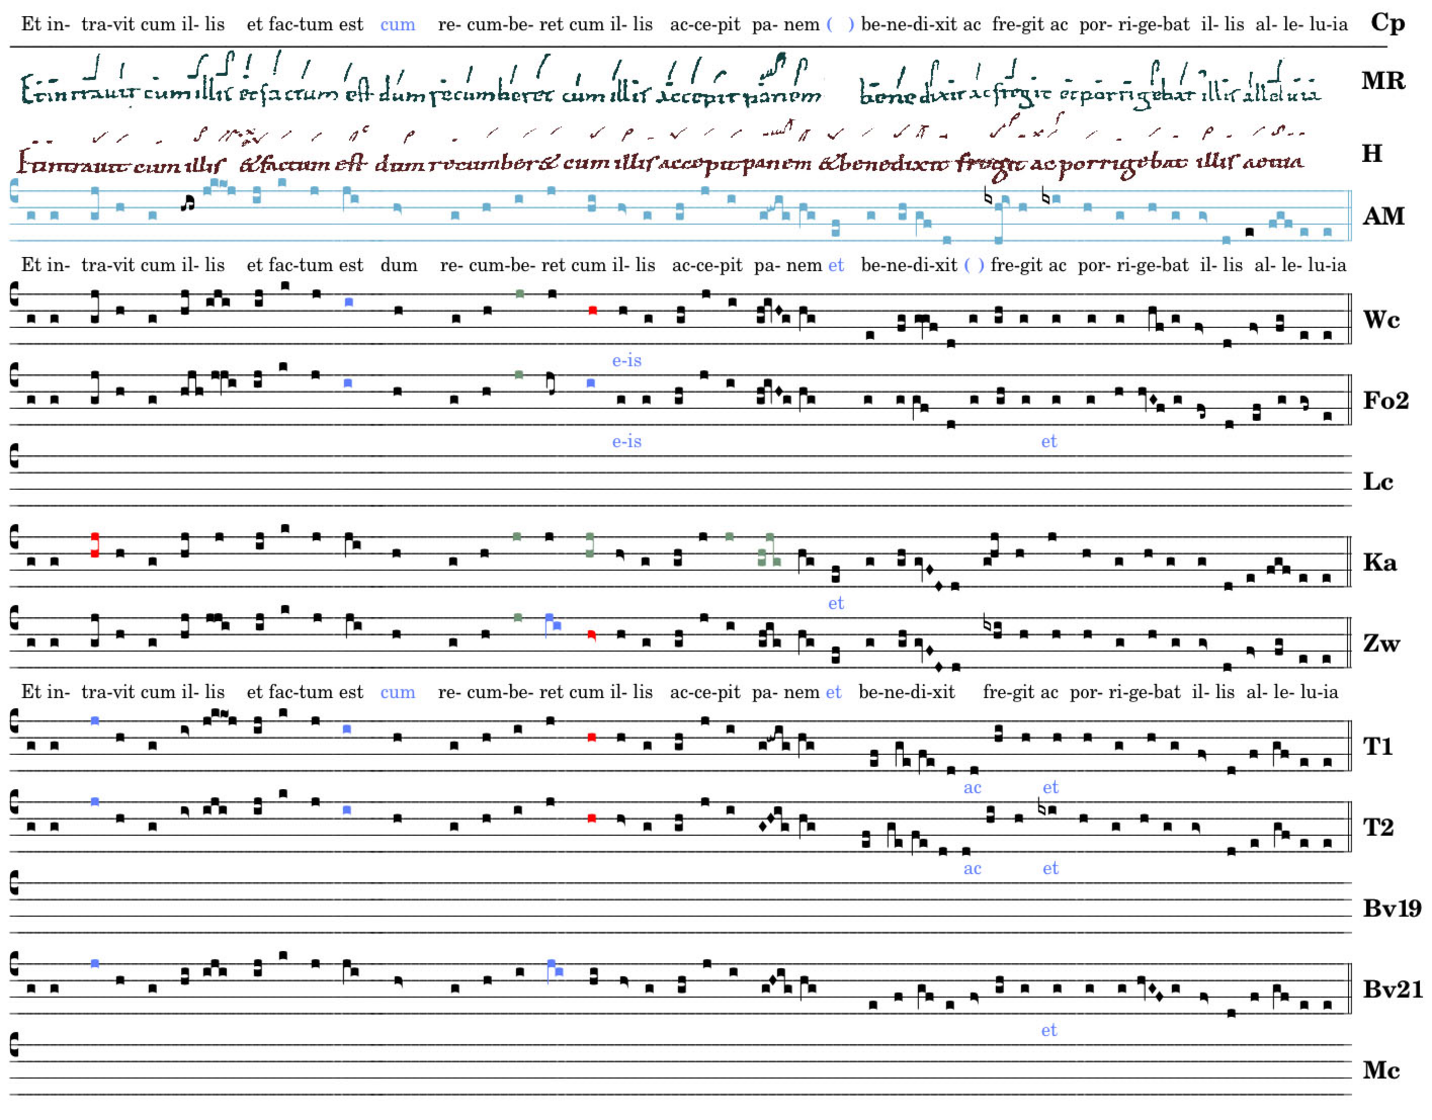 Et in- tra-vit cum il- lis et fac-tum est cum re- cum-be- ret cum il- lis ac-ce-pit pa- nem ( ) be-ne-di-xit ac fre-git ac por- ri-ge-bat il- lis al- le- lu-ia Cp
Et intravit cum illis et factum est dum recumberet cum illis accepit panem benedixit ac fregit et porrigebat illis alleluia MR
Et intravit cum illis & factum est dum recumber& cum illis accepit panem & benedixit fregit ac porrigebat illis aevia H
AM
Et in- tra-vit cum il- lis et fac-tum est dum re- cum-be- ret cum il- lis ac-ce-pit pa- nem et be-ne-di-xit ( ) fre-git ac por- ri-ge-bat il- lis al- le- lu-ia
Wc
e-is
Fo2
e-is et
Lc
Ka
et
Zw
Et in- tra-vit cum il- lis et fac-tum est cum re- cum-be- ret cum il- lis ac-ce-pit pa- nem et be-ne-di-xit fre-git ac por- ri-ge-bat il- lis al- le- lu-ia
T1
ac et
T2
ac et
Bv19
Bv21
et
Mc